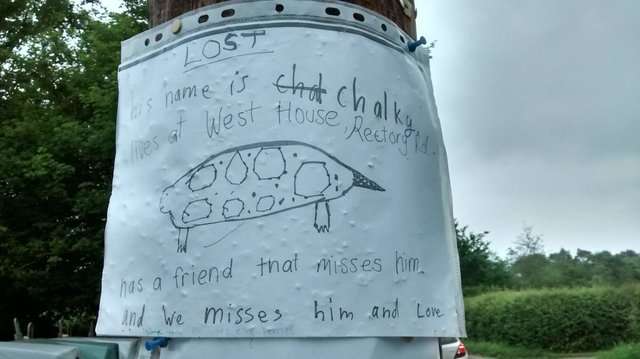 LOST
his name is chat Chalky
lives at West House, Rectory Rd.
has a friend that misses him
and We misses him and Love